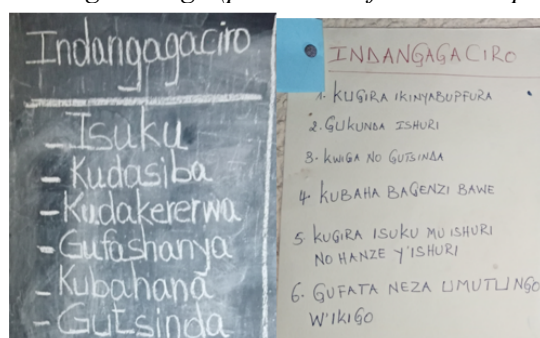 Indangagaciro
- Isuku
- Kudasiba
- Kudakererwa
- Gufashanya
- Kubahana
- Gutsinda
INDANGAGACIRO
1. KUGIRA IKINYABUPFURA
2. GUKUNDA ISHURI
3. KWIGA NO GUTSINDA
4 KUBAHA BAGENZI BAWE
5. KUGIRA ISUKU MU ISHURI
NO HANZE Y'ISHURI
6. GUFATA NEZA UMUTUNGO
W'IKIGO